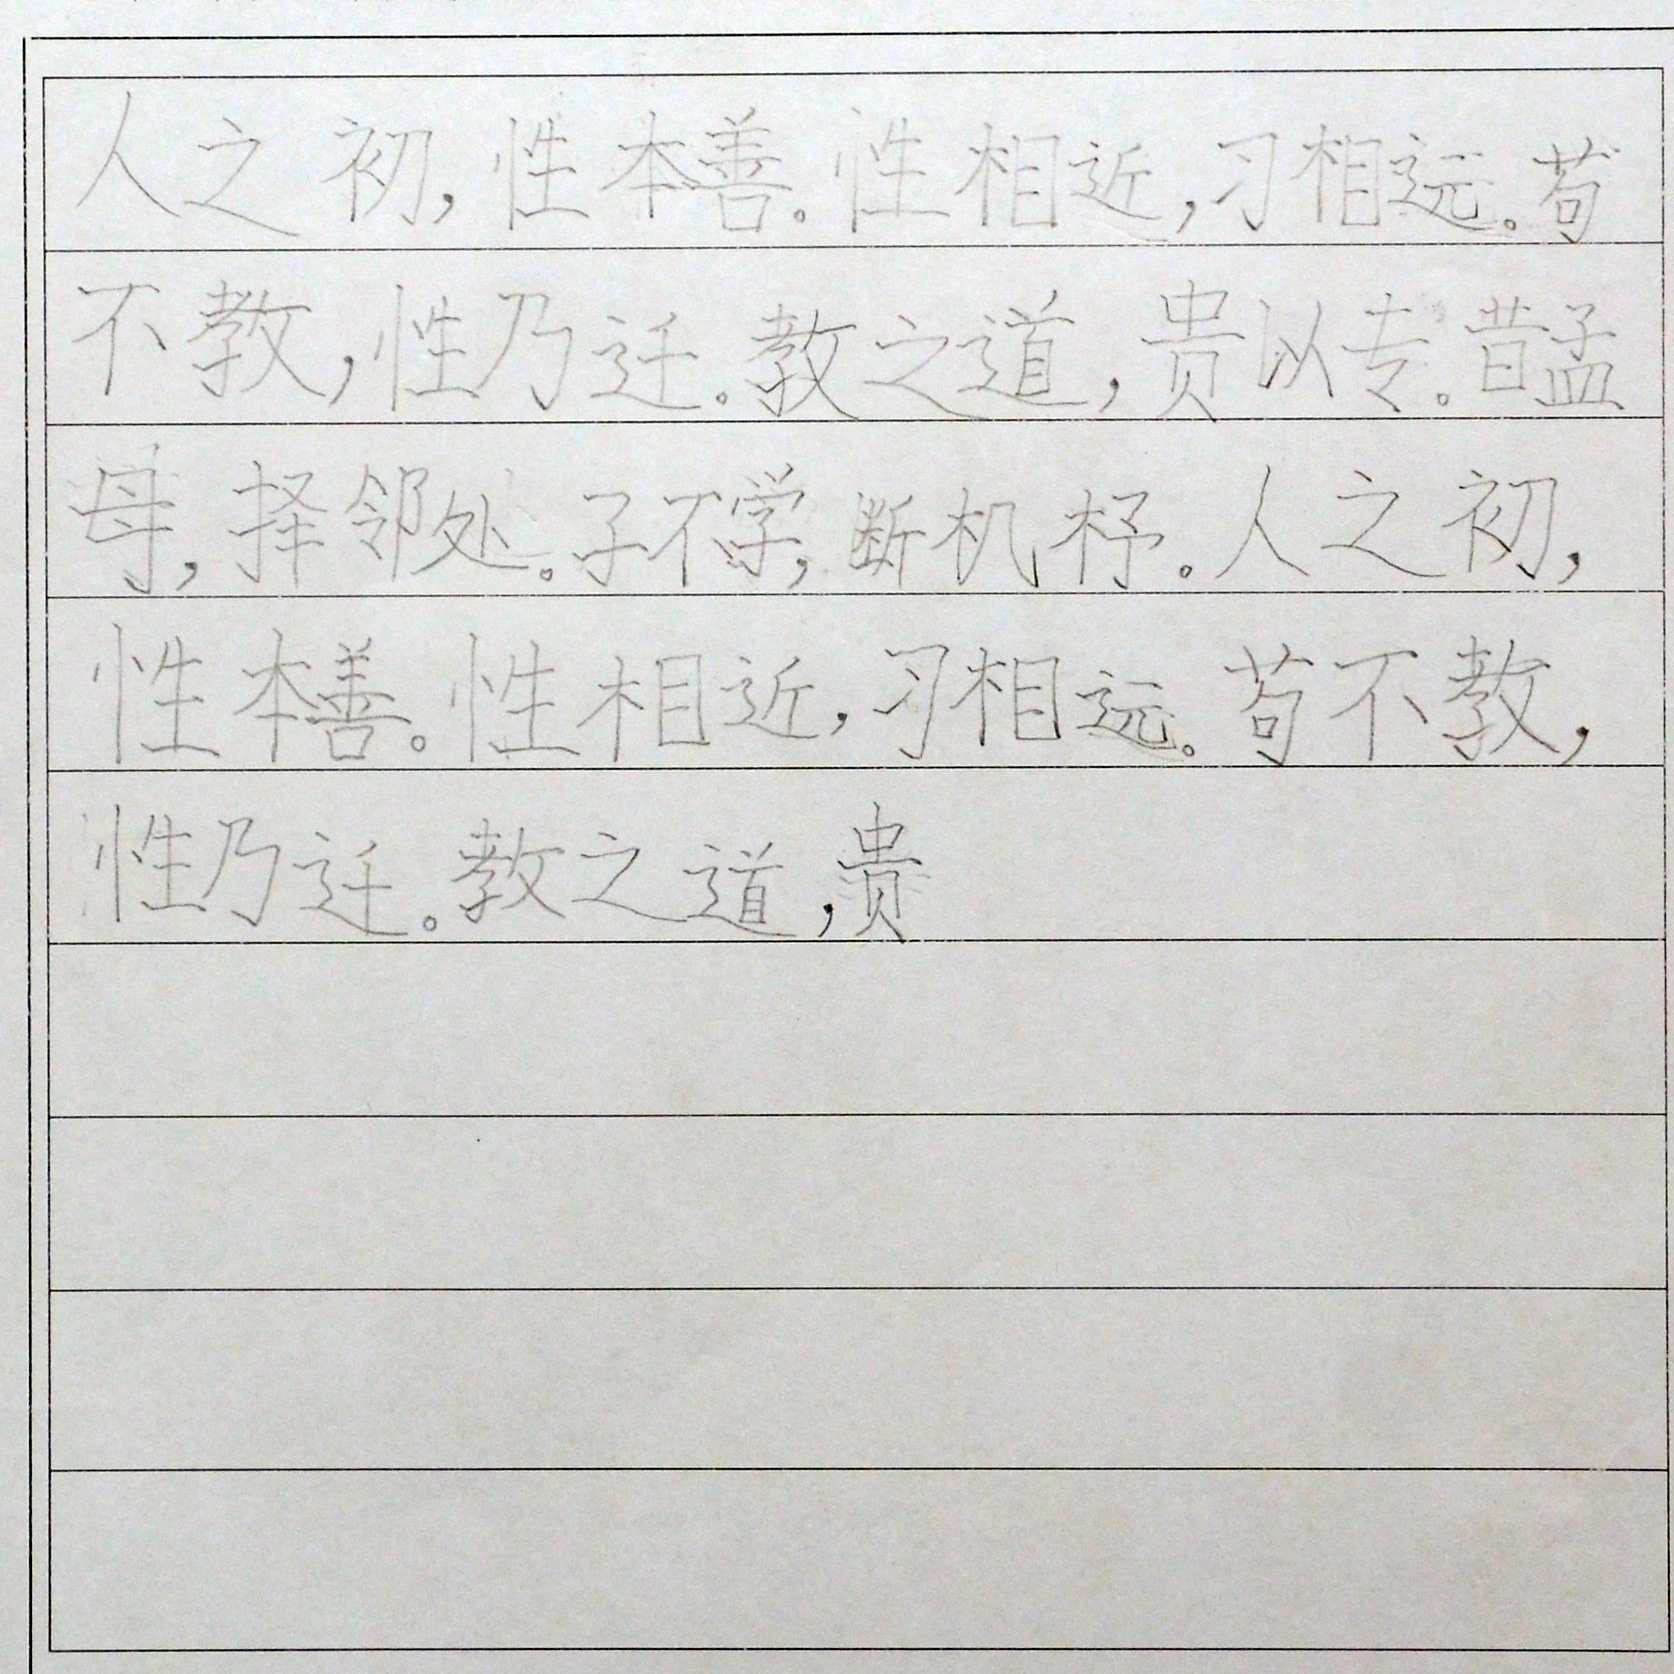 人之初，性本善。性相近，习相远。苟
不教，性乃迁。教之道，贵以专。昔孟
母，择邻处。子不学，断机杼。人之初，
性本善。性相近，习相远。苟不教，
性乃迁。教之道，贵